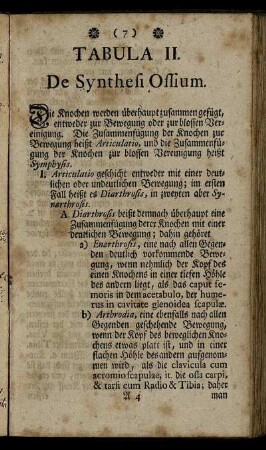 (7)
TABULA II.
De Synthesi Ossium.
Die Knochen werden überhaupt zusammen gefügt,
entweder zur Bewegung oder zur blossen Ver-
einigung. Die Zusammenfügung der Knochen zur
Bewegung heißt Articulatio, und die Zusammenfü-
gung der Knochen zur blossen Vereinigung heißt
Symphysis.
I. Articulatio geschicht entweder mit einer deut-
lichen oder undeutlichen Bewegung; im ersten
Fall heißt es Diarthrosis, in zweyten aber Sy-
narthrosis.
A. Diarthrosis heißt demnach überhaupt eine
Zusammenfügung derer Knochen mit einer
deutlichen Bewegung; dahin gehöret
a) Enarthrosis, eine nach allen Gegen-
den deutlich vorkommende Bewe-
gung, wenn nehmlich der Kopf des
einen Knochens in einer tiefen Höhle
des andern liegt, als das caput fe-
moris in dem acetabulo, der hume-
rus in cavitate glenoidea scapulæ.
b) Arthrodia, eine ebenfalls nach allen
Gegenden geschehende Bewegung,
wenn der Kopf des beweglichen Kno-
chens etwas platt ist, und in einer
flachen Höhle des andern aufgenom-
men wird, als die clavicula cum
acromio scapulæ, it. die ossa carpi,
& tarsi cum Radio & Tibia; daher
A 4 man